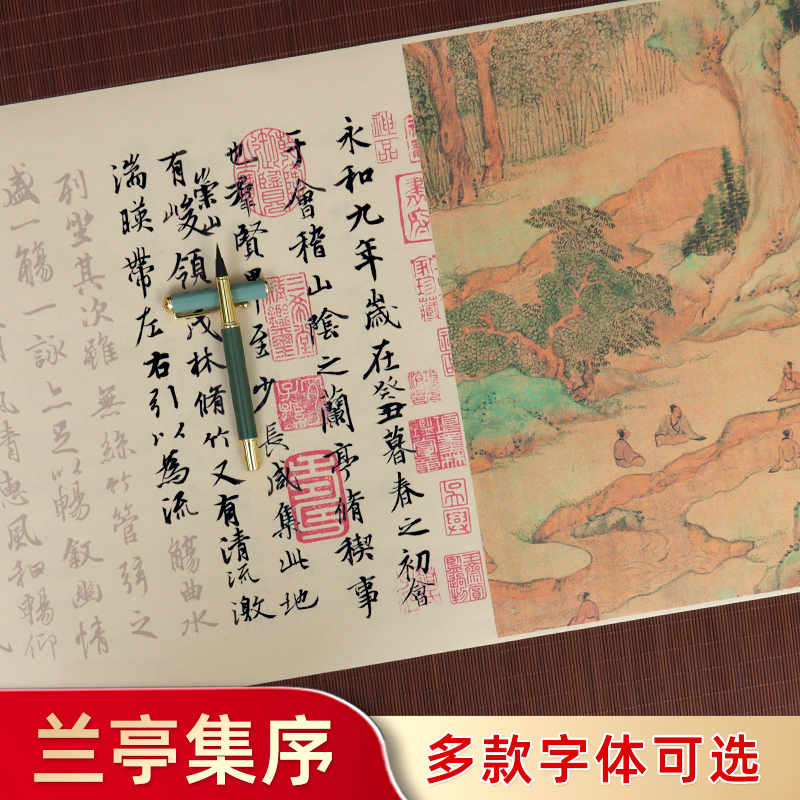 永和九年歲在癸丑暮春之初會
于會稽山陰之蘭亭脩稧事
也羣賢畢至少長咸集此地
有崇山峻領茂林脩竹又有清流激
湍暎帶左右引以為流觴曲水
列坐其次雖無絲竹管弦之
盛一觴一詠亦足以暢敘幽情
清惠風和暢仰
神品
兰亭集序
多款字体可选